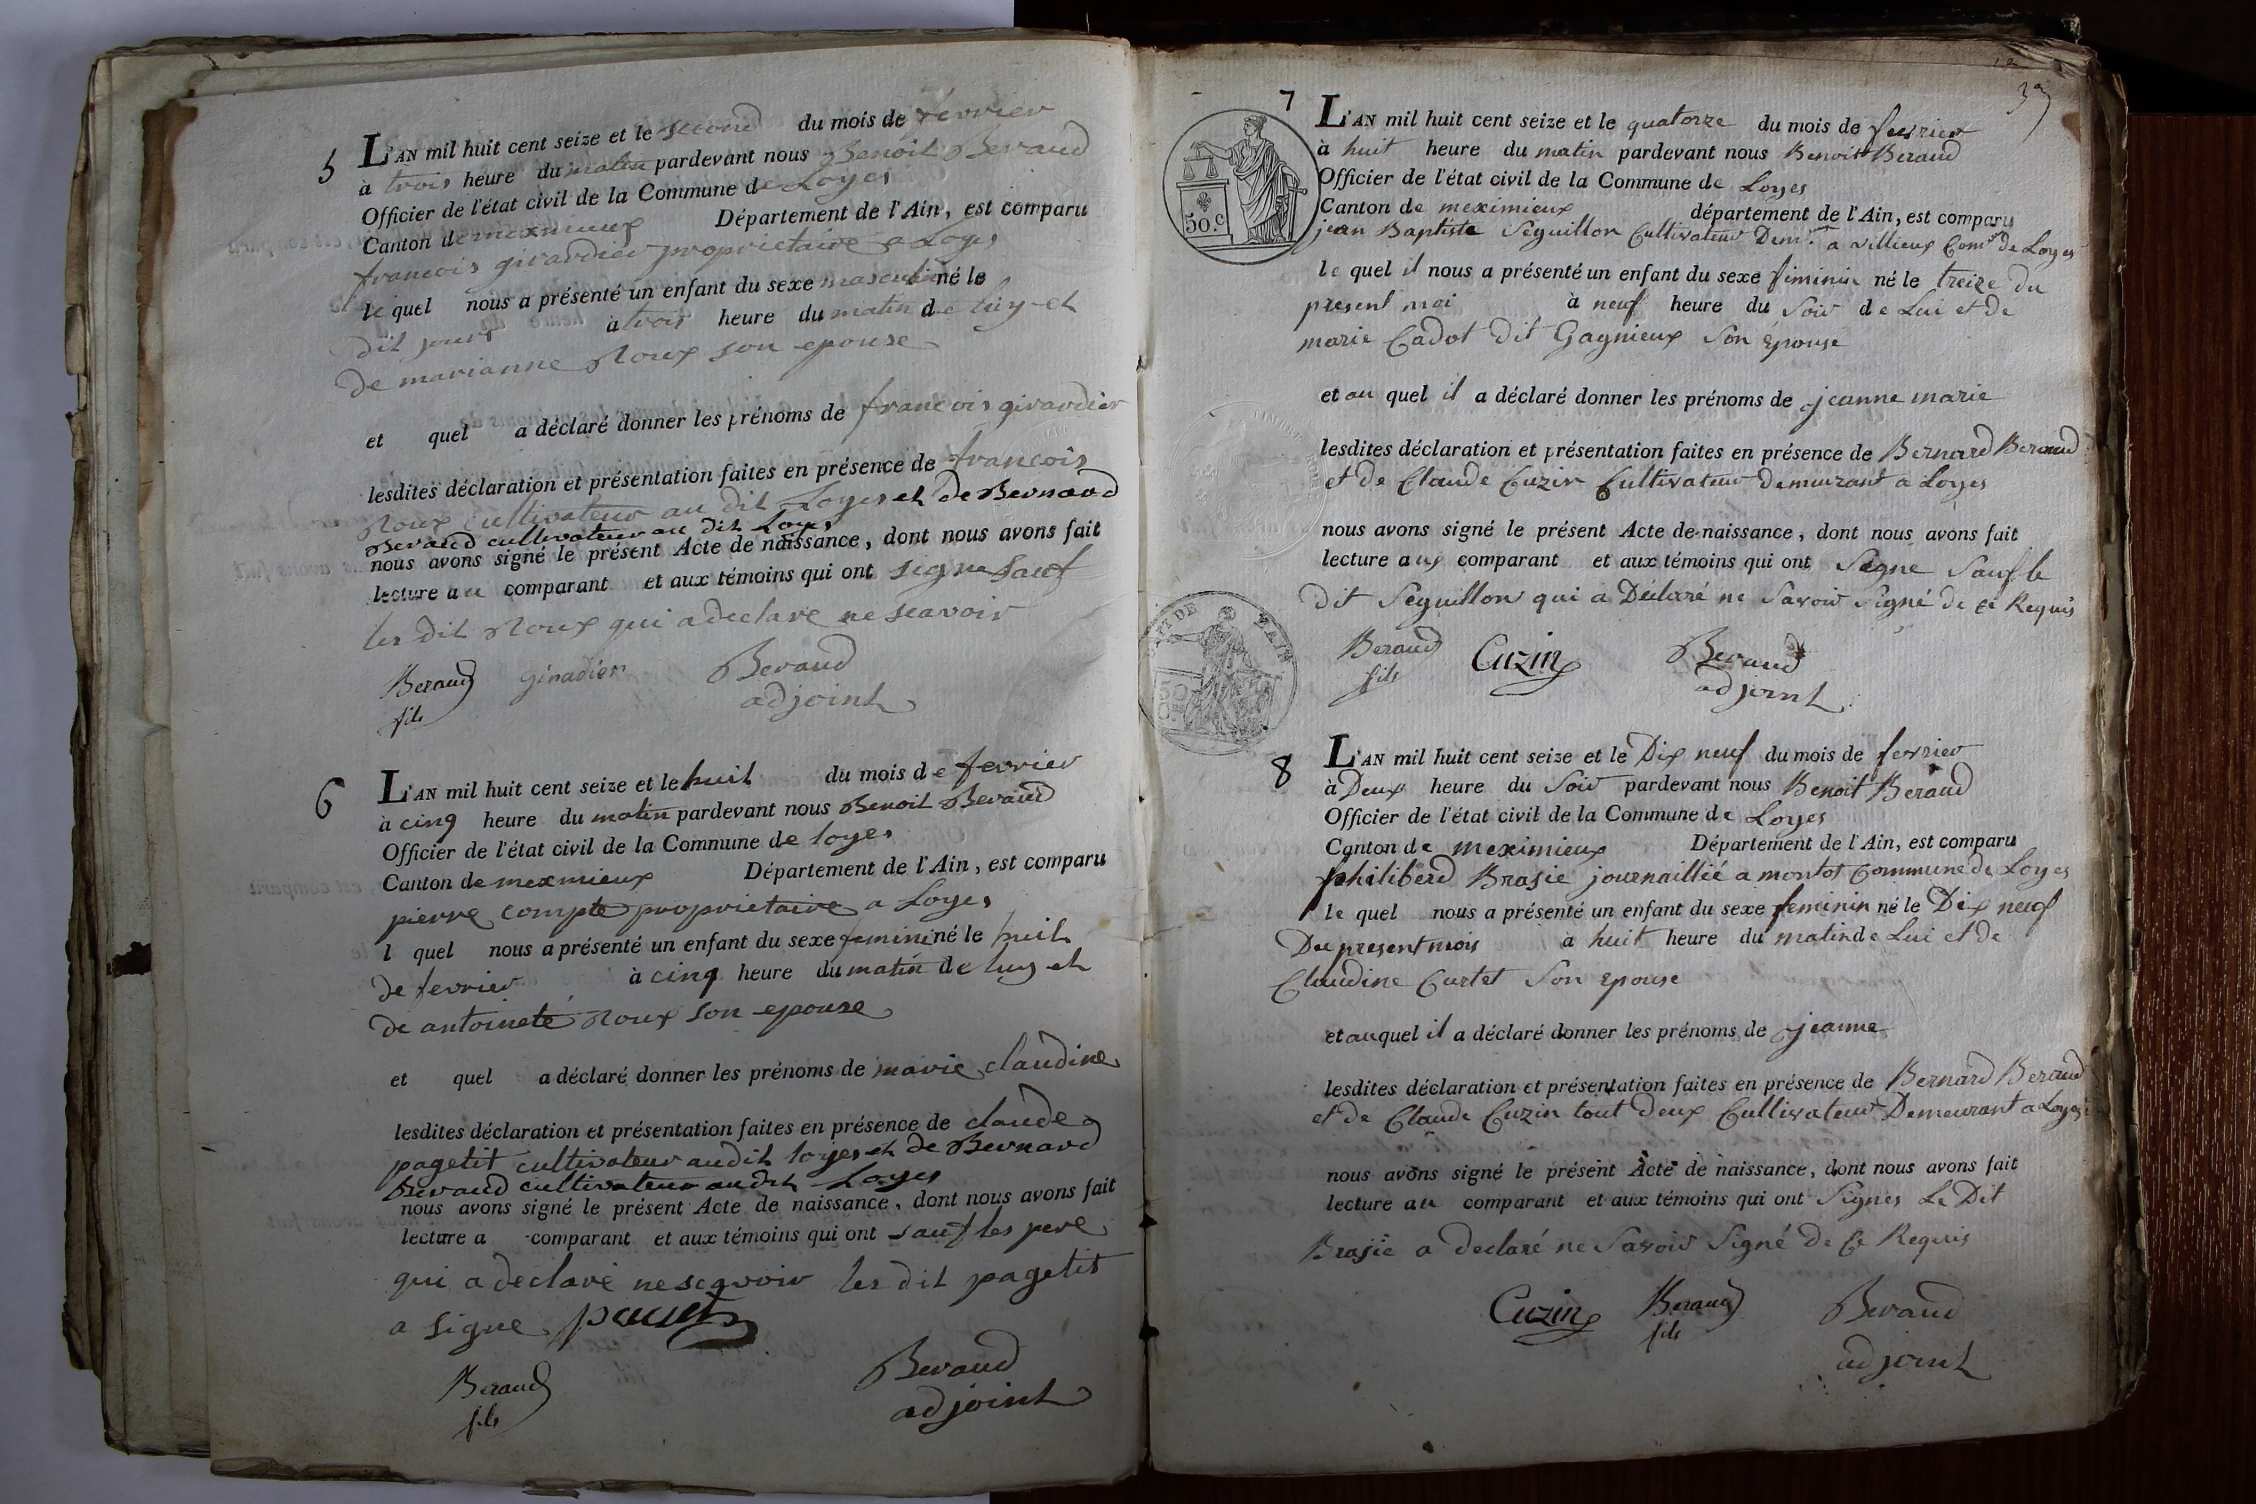 5
L'AN mil huit cent seize et le second du mois de fevrier
à trois heure du matin pardevant nous Benoit Beraud
Officier de l'état civil de la Commune de Loyes
Canton de meximieux Département de l'Ain, est comparu
francois girardier proprietaire a Loyes
le quel nous a présenté un enfant du sexe masculin né le
dit jour à trois heure du matin de luy et
de marianne Roux son epouse
et quel a déclaré donner les prénoms de francois girardier
lesdites déclaration et présentation faites en présence de francois
Roux cultivateur au dit Loyes et de Bernard
Beraud cultivateur au dit Loyes
nous avons signé le présent Acte de naissance, dont nous avons fait
lecture au comparant et aux témoins qui ont signe sauf
les dit Roux qui a declare ne scavoir
Beraud giradier Beraud
fils adjoint
6
L'AN mil huit cent seize et le huit du mois de fevrier
à cinq heure du matin pardevant nous Benoit Beraud
Officier de l'état civil de la Commune de loyes
Canton de mexmieux Département de l'Ain, est comparu
pierre compte proprietaire a Loyes
l quel nous a présenté un enfant du sexe feminin né le huit
de fevrier à cinq heure du matin de luy et
de antoinete Roux son epouse
et quel a déclaré donner les prénoms de marie claudine
lesdites déclaration et présentation faites en présence de claude
pagetit cultivateur audit loyes et de Bernard
Beraud cultivateur audit Loyes
nous avons signé le présent Acte de naissance, dont nous avons fait
lecture a comparant et aux témoins qui ont sauf les pere
qui a declaré ne scavoir les dit pagetit
a signe
Beraud Beraud
fils adjoint
39
7
50.C
L'AN mil huit cent seize et le quatorze du mois de fevrier
à huit heure du matin pardevant nous Benoit Beraud
Officier de l'état civil de la Commune de Loyes
Canton de meximieux département de l'Ain, est comparu
jean Baptiste Séguillon Cultivateur Dem.t a villieux Com.e de Loyes
le quel il nous a présenté un enfant du sexe féminin né le treize du
present moi à neuf heure du Soir de Lui et de
marie Cadot dit Gagnieux Son épouse
et au quel il a déclaré donner les prénoms de jeanne marie
lesdites déclaration et présentation faites en présence de Bernard Beraud
et de Claude Cuzin Cultivateur demeurant a Loyes
nous avons signé le présent Acte de naissance, dont nous avons fait
lecture aux comparant et aux témoins qui ont Signé Sauf le
dit Séguillon qui a Déclaré ne Savoir Signé de ce Requis
Beraud Cuzin Beraud
fils adjoint
8
L'AN mil huit cent seize et le Dix neuf du mois de fevrier
à Deux heure du Soir pardevant nous Benoit Beraud
Officier de l'état civil de la Commune de Loyes
Canton de meximieux Département de l'Ain, est comparu
philiberd Brasie journaillié a montot Commune de Loyes
le quel nous a présenté un enfant du sexe feminin né le Dix neuf
Du present mois à huit heure du matin de Lui et de
Claudine Curtet Son epouse
et au quel il a déclaré donner les prénoms de jeanne
lesdites déclaration et présentation faites en présence de Bernard Beraud
et de Claude Cuzin tout deux Cultivateur Demeurant a Loyes
nous avons signé le présent Acte de naissance, dont nous avons fait
lecture au comparant et aux témoins qui ont Signes Le Dit
Brasie a declaré ne Savoir Signé de Ce Requis
Cuzin Beraud Beraud
fils adjoint